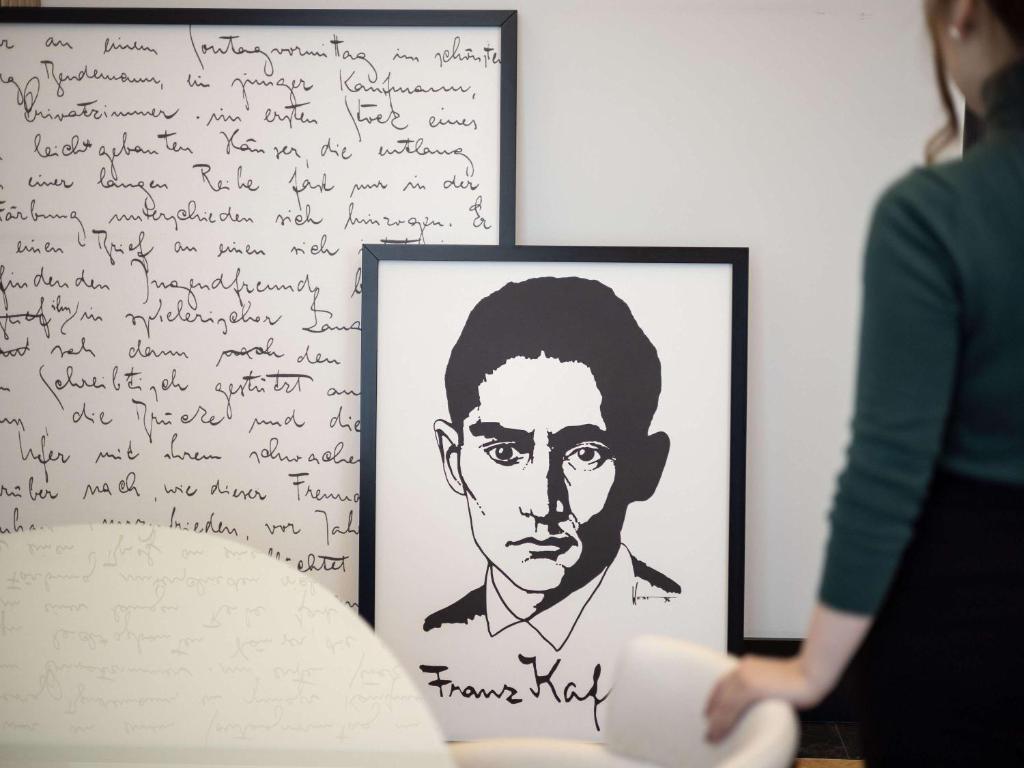 an einem Sontagvormittag im schönsten
Bendemann, ein junger Kaufmann,
Privatzimmer im ersten Stock eines
leichtgebauten Häuser, die entlang
einer langen Reihe fast nur in der
Färbung unterschieden sich hinzogen. Er
einen Brief an einen sich
findenden Jugendfreund
ihn in spielerischer
sah dann nach den
Schreibtisch gestützt
die Brücke und die
Ufer mit ihrem schwachen
darüber nach, wie dieser Freund
vor Jah
Franz Kaf